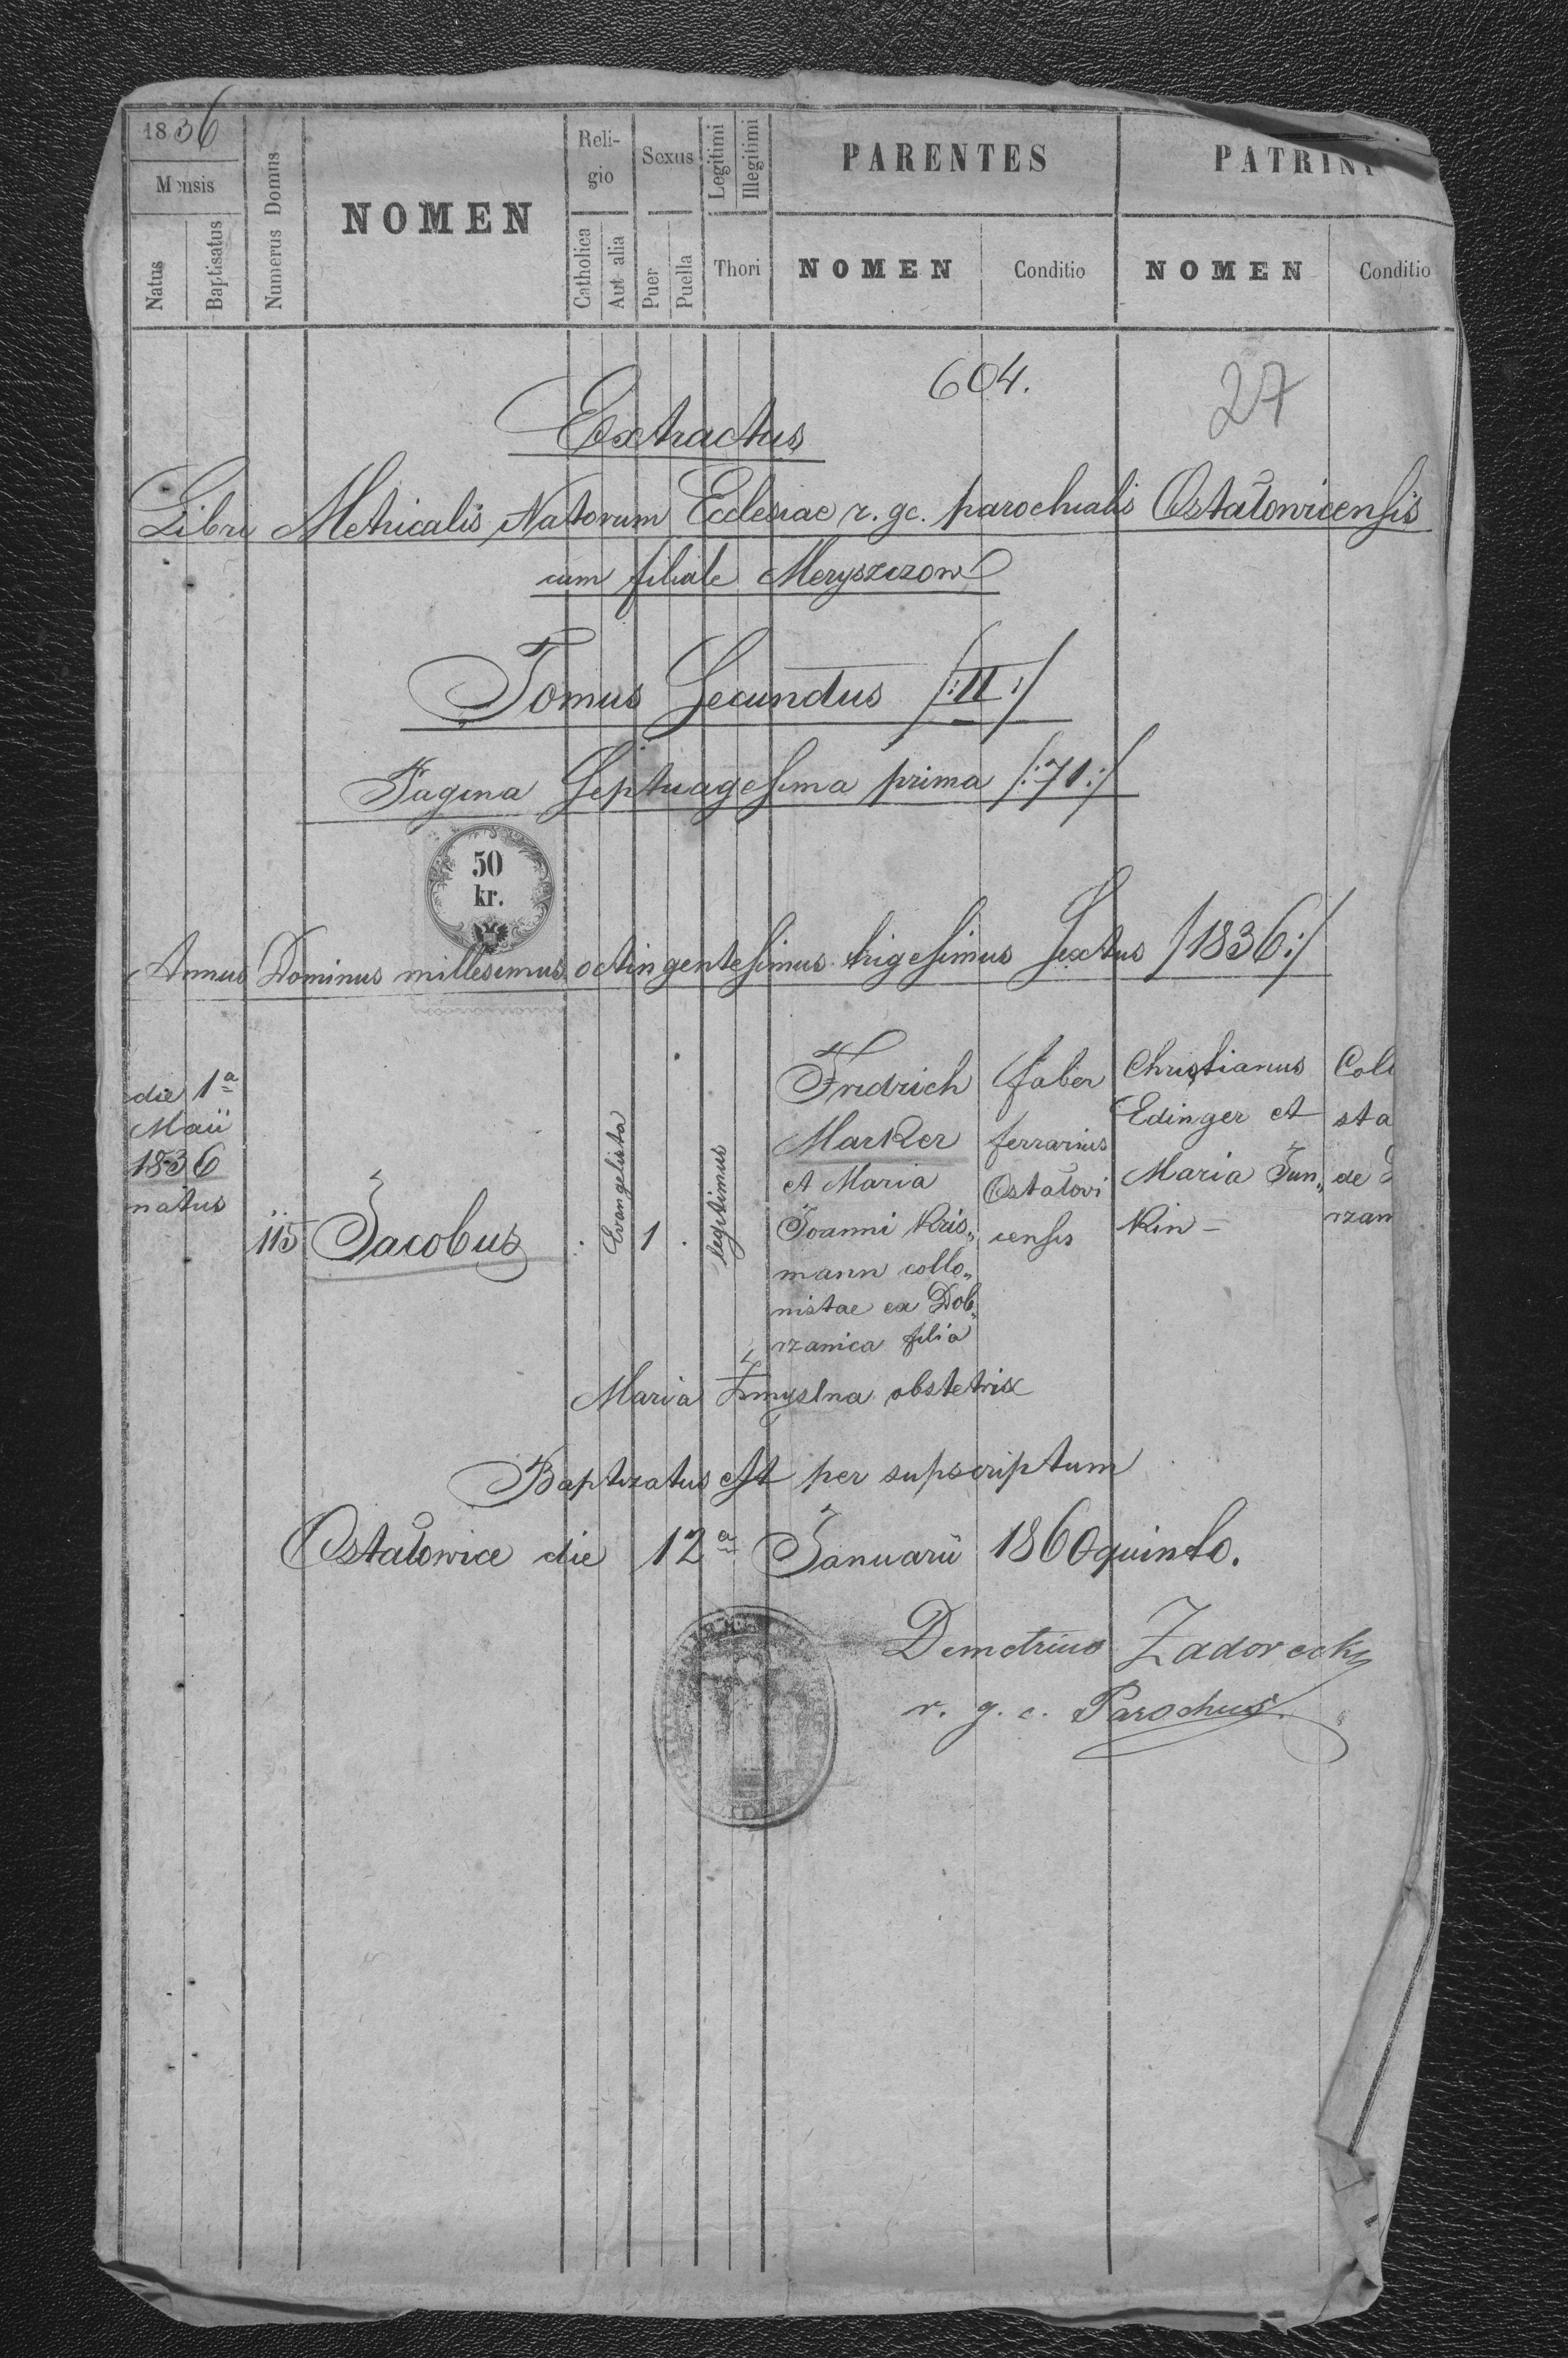 1836
Mensis
Natus
Baptisatus
Numerus Domus
NOMEN
Reli-
gio
Catholica
Aut alia
Sexus
Puer
Puella
Legitimi
Illegitimi
Thori
PARENTES
NOMEN
Conditio
PATRINI
NOMEN
Conditio
604.
27
Extractus
Libri Metricalis Natorum Ecclesiae r. gc. parochialis Ostałowicensis
cum filiale Meryszczow
Tomus Secundus /:II:/
Pagina Septuagesima prima /:71:/
50
kr.
Annus Dominus millesimus octingentesimus trigesimus sextus /1836:/
die 1a
Maii
1836
natus
115
Jacobus
Evangelista
1
legitimus
Fridrich
Marker
et Maria
Joanni Kris„
mann collo„
nistae ex Dob„
rzanica filia
faber
ferrarius
Ostałovi
censis
Christianus
Edinger et
Maria Jun„
kin –
Colo
sta
de
rzan
Maria Zmyslna obstetrix
Baptizatus est per supscriptum
Ostałowice die 12a Januarii 1860quinto.
Demetrius Zadorecky
r. g. c. Parochus.